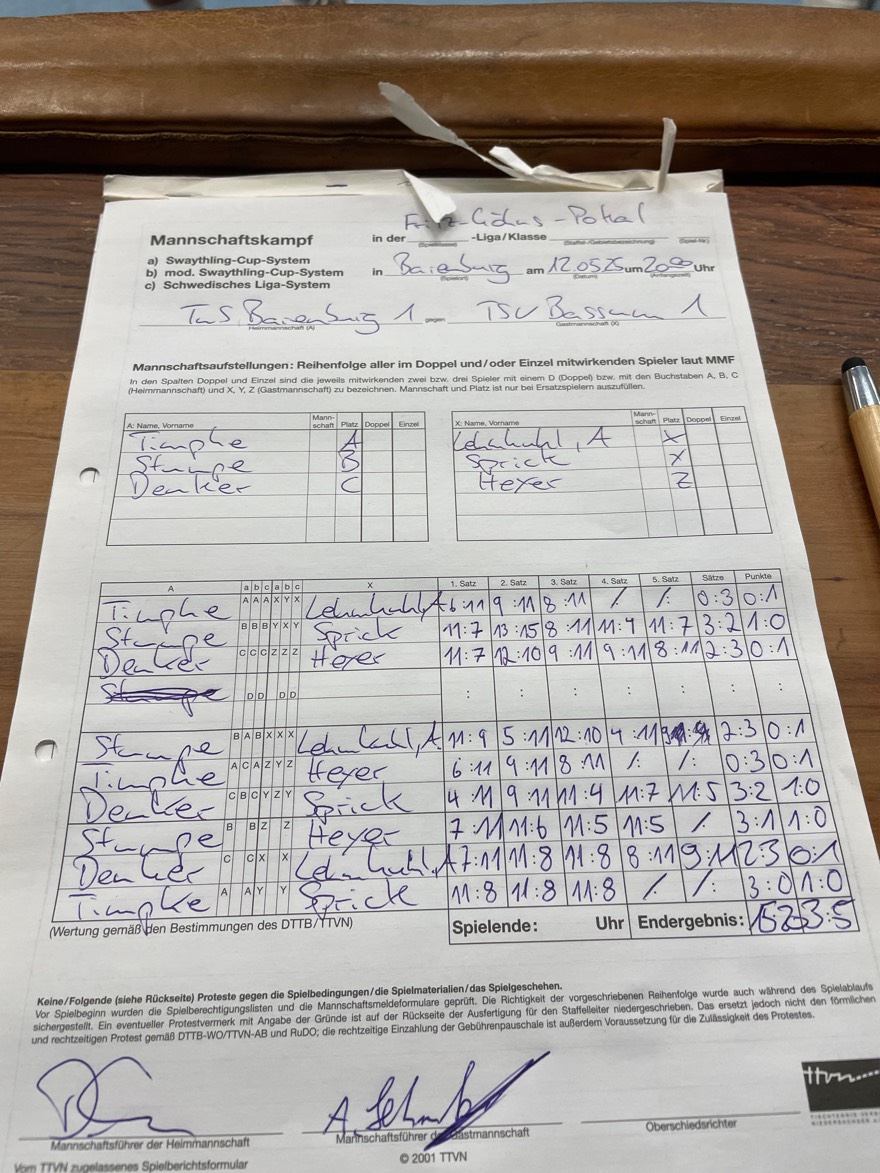 Fritz-Göhns-Pokal
Mannschaftskampf in der -Liga/Klasse
a) Swaythling-Cup-System
b) mod. Swaythling-Cup-System in Barenburg am 12.05.25 um 20 00 Uhr
c) Schwedisches Liga-System
TuS Barenburg 1 gegen TSV Bassum 1
Heimmannschaft (A) Gastmannschaft (X)
Mannschaftsaufstellungen: Reihenfolge aller im Doppel und/oder Einzel mitwirkenden Spieler laut MMF
In den Spalten Doppel und Einzel sind die jeweils mitwirkenden zwei bzw. drei Spieler mit einem D (Doppel) bzw. mit den Buchstaben A, B, C
(Heimmannschaft) und X, Y, Z (Gastmannschaft) zu bezeichnen. Mannschaft und Platz ist nur bei Ersatzspielern auszufüllen.
A: Name, Vorname Mann-schaft Platz Doppel Einzel X: Name, Vorname Mann-schaft Platz Doppel Einzel
Timphe A Lehmkuhl, A X
Stumpe B Sprick Y
Denker C Heyer Z
A a b c a b c X 1. Satz 2. Satz 3. Satz 4. Satz 5. Satz Sätze Punkte
Timphe A A A X Y X Lehmkuhl, A 6:11 9:11 8:11 /. /. 0:3 0:1
Stumpe B B B Y X Y Sprick 11:7 13:15 8:11 11:4 11:7 3:2 1:0
Denker C C C Z Z Z Heyer 11:7 12:10 9:11 9:11 8:11 2:3 0:1
Stumpe D D D D : : : : : : :
Stumpe B A B X X X Lehmkuhl, A. 11:9 5:11 12:10 4:11 2:3 0:1
Timphe A C A Z Y Z Heyer 6:11 9:11 8:11 /. /. 0:3 0:1
Denker C B C Y Z Y Sprick 4:11 9:11 11:4 11:7 11:5 3:2 1:0
Stumpe B B Z Z Heyer 7:11 11:6 11:5 11:5 /. 3:1 1:0
Denker C C X X Lehmkuhl, A 7:11 11:8 11:8 8:11 9:11 2:3 0:1
Timpke A A Y Y Sprick 11:8 11:8 11:8 /. /. 3:0 1:0
(Wertung gemäß den Bestimmungen des DTTB/TTVN) Spielende: Uhr Endergebnis: 3:5
Keine/Folgende (siehe Rückseite) Proteste gegen die Spielbedingungen/die Spielmaterialien/das Spielgeschehen.
Vor Spielbeginn wurden die Spielberechtigungslisten und die Mannschaftsmeldeformulare geprüft. Die Richtigkeit der vorgeschriebenen Reihenfolge wurde auch während des Spielablaufs
sichergestellt. Ein eventueller Protestvermerk mit Angabe der Gründe ist auf der Rückseite der Ausfertigung für den Staffelleiter niedergeschrieben. Das ersetzt jedoch nicht den förmlichen
und rechtzeitigen Protest gemäß DTTB-WO/TTVN-AB und RuDO; die rechtzeitige Einzahlung der Gebührenpauschale ist außerdem Voraussetzung für die Zulässigkeit des Protestes.
ttvn
Mannschaftsführer der Heimmannschaft Mannschaftsführer der Gastmannschaft Oberschiedsrichter
Vom TTVN zugelassenes Spielberichtsformular © 2001 TTVN